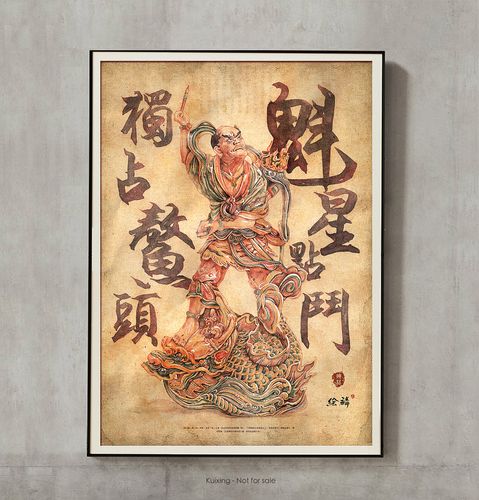 魁星點鬥
獨占鰲頭
Kuixing - Not for sale